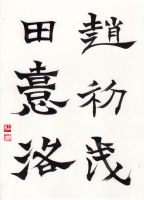 趙初茂
田憙洛